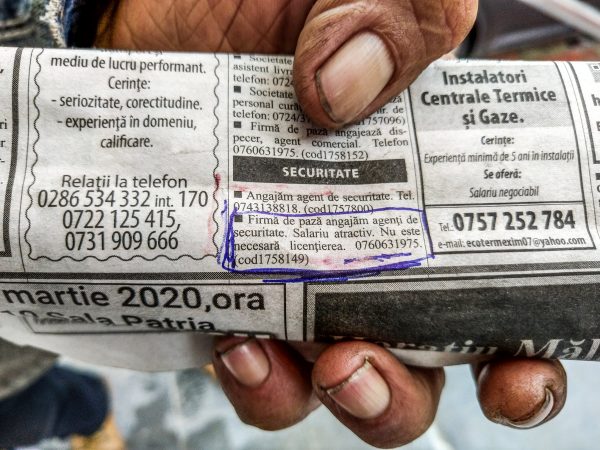 mediu de lucru performant.
Cerințe:
- seriozitate, corectitudine.
- experiență în domeniu,
calificare.
Relații la telefon
0286 534 332 int. 170
0722 125 415,
0731 909 666
■ Societate
asistent livr
telefon: 0724
■ Societate
personal
telefon:
■ Firmă de pază angajează dis-
pecer, agent comercial. Telefon
0760631975. (cod1758152)
SECURITATE
■ Angajăm agent de securitate. Tel.
0743138818. (cod1757800)
■ Firmă de pază angajăm agenți de
securitate. Salariu atractiv. Nu este
necesară licențierea. 0760631975.
(cod1758149)
Instalatori
Centrale Termice
și Gaze.
Cerințe:
Experiență minimă de 5 ani în instalații
Se oferă:
Salariu negociabil
Tel.: 0757 252 784
e-mail: ecotermexim07@yahoo.com
martie 2020,ora
Sala Patria